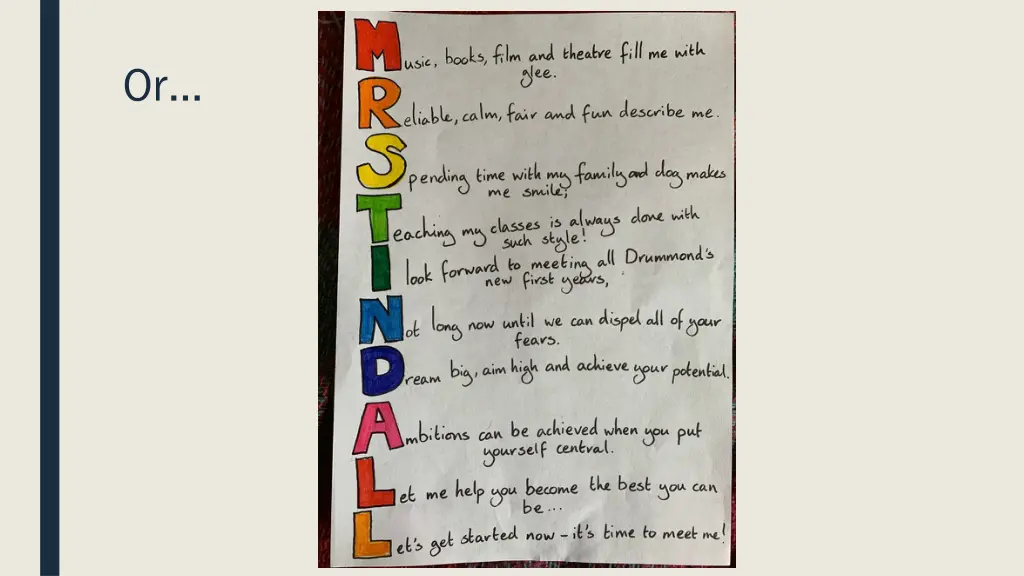 Or...
Music, books, film and theatre fill me with
glee.
Reliable, calm, fair and fun describe me.
Spending time with my family and dog makes
me smile;
Teaching my classes is always done with
such style!
I look forward to meeting all Drummond's
new first years,
Not long now until we can dispel all of your
fears.
Dream big, aim high and achieve your potential.
Ambitions can be achieved when you put
yourself central.
Let me help you become the best you can
be...
Let's get started now - it's time to meet me!